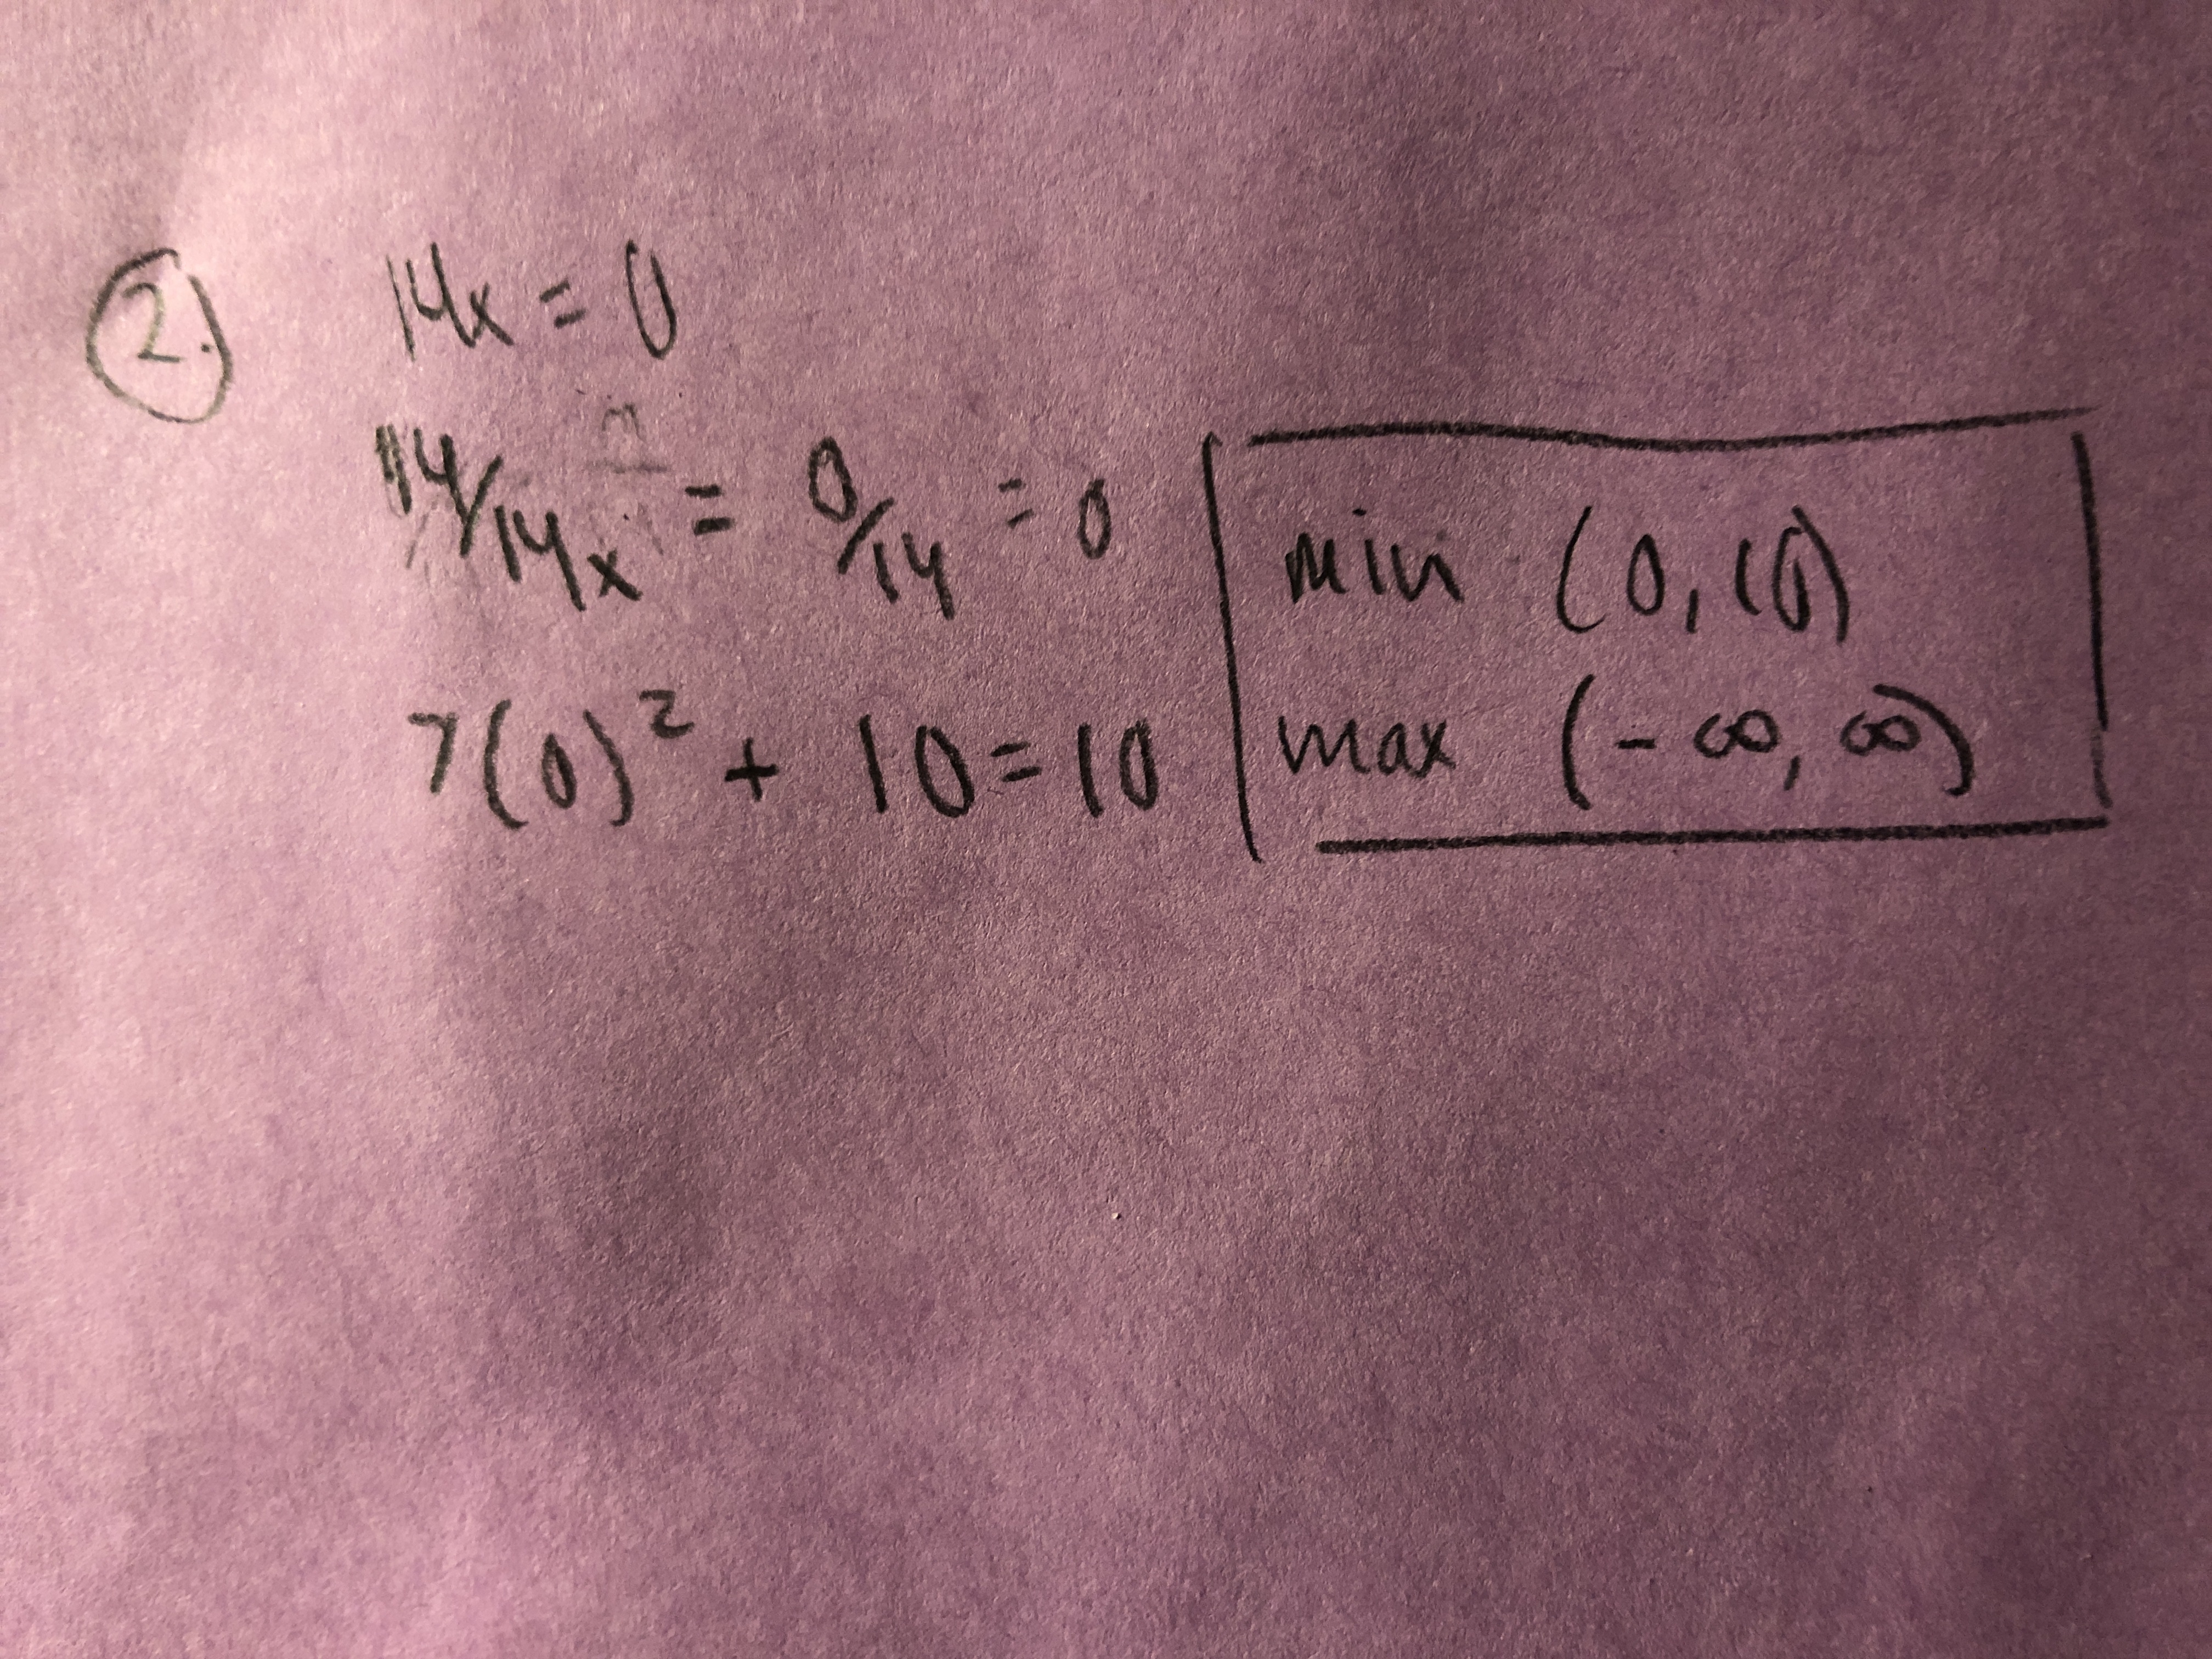 2.
14x = 0
14/14x = 0/14 = 0
7(0)² + 10 = 10
min (0, 10)
max (-∞, ∞)